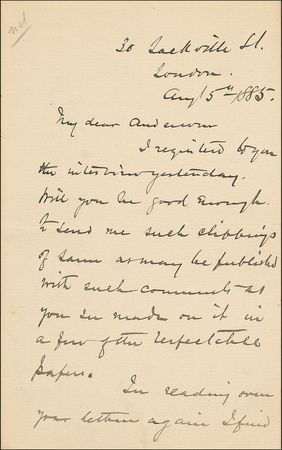 30 Sackville St.
London.
Aug 5th 1885.
My dear Anderson
I registered to you
the interview yesterday.
Will you be good enough
to send me such clippings
of same as may be published
with such comments as
you see made on it in
a few of the respectable
papers.
In reading over
your letter again I find